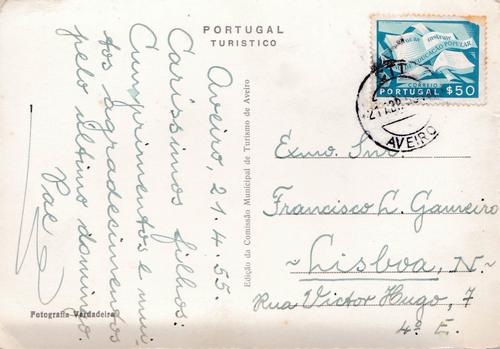 PORTUGAL
TURISTICO
Aveiro, 21.4.55.
Caríssimos filhos:
Cumprimentos e mui-
tos agradecimentos
pelo último domingo.
Pae
Fotografia Verdadeira
Edição da Comissão Municipal de Turismo de Aveiro
EDUCAÇÃO POPULAR
CORREIO
PORTUGAL $50
CTT
AVEIRO
Exmo. Snr.
Francisco L. Gameiro
~ Lisboa, N. ~
Rua Victor Hugo, 7
4º E.